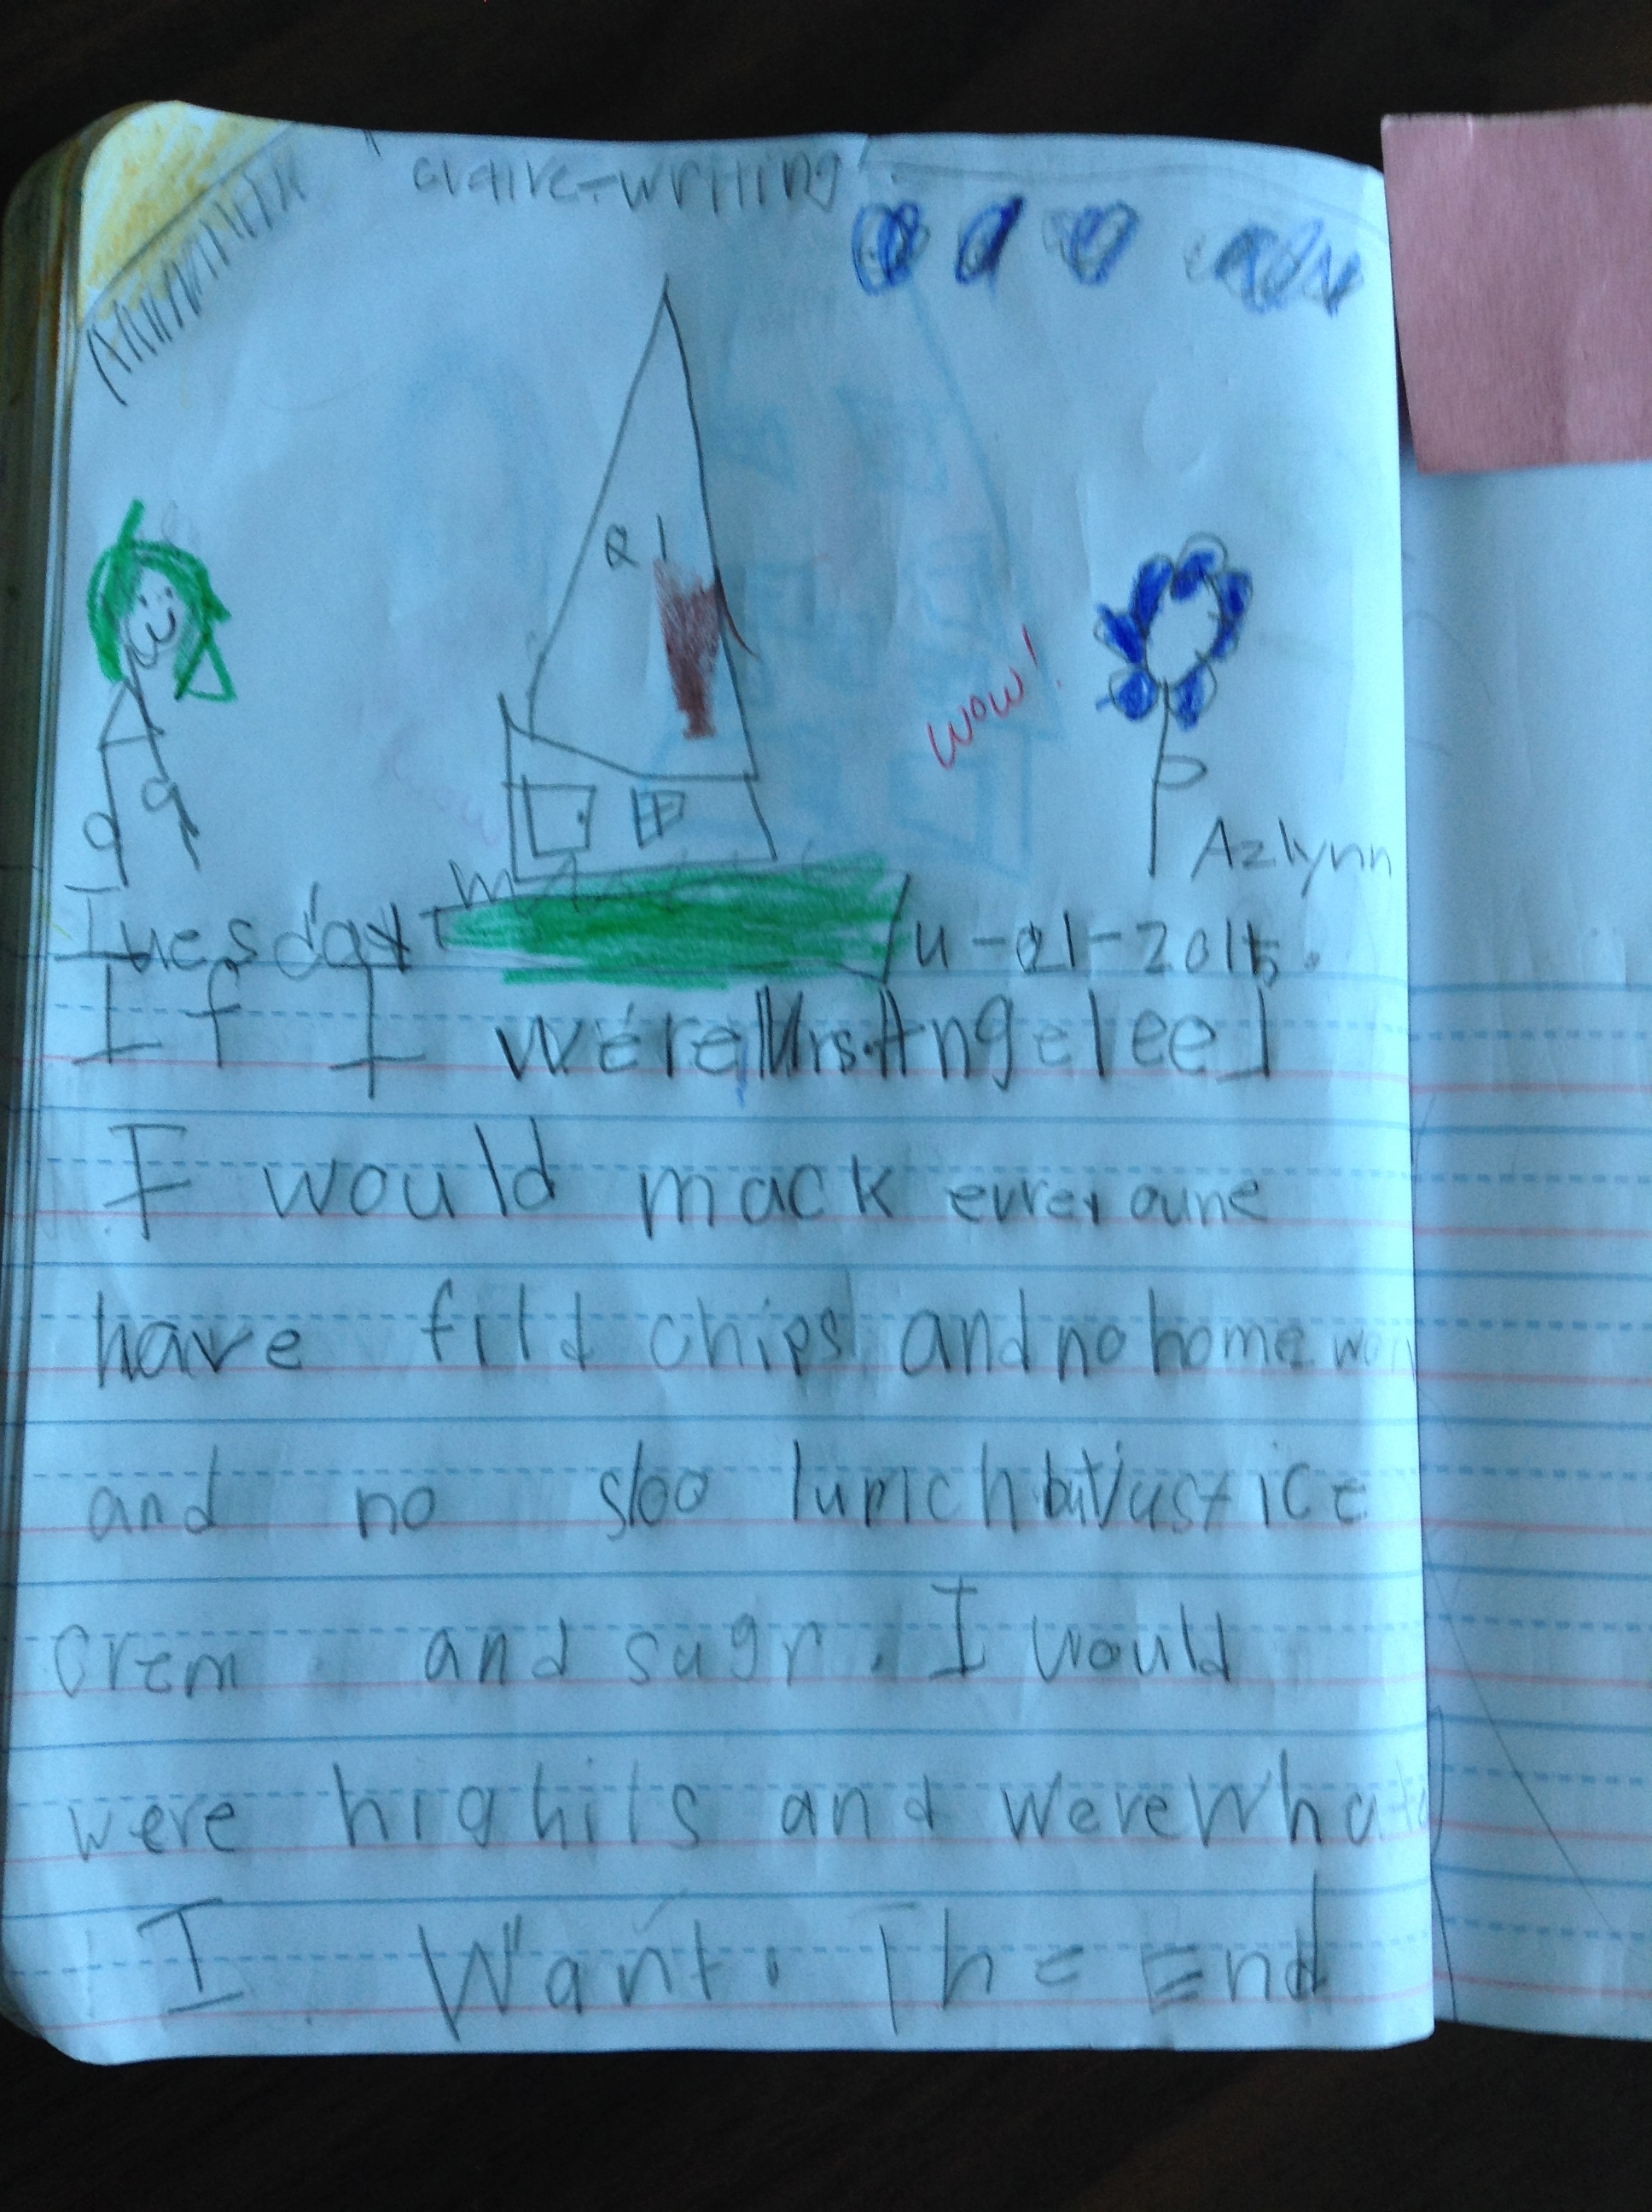 writing
21
wow!
Azlynn
Tuesday 4-21-2015.
If I were Mrs. Angelee I
I would mack
have fild chips and no home
and no sloo lunch but just ice
crem and sugr. I would
were highils and were
I want. The End